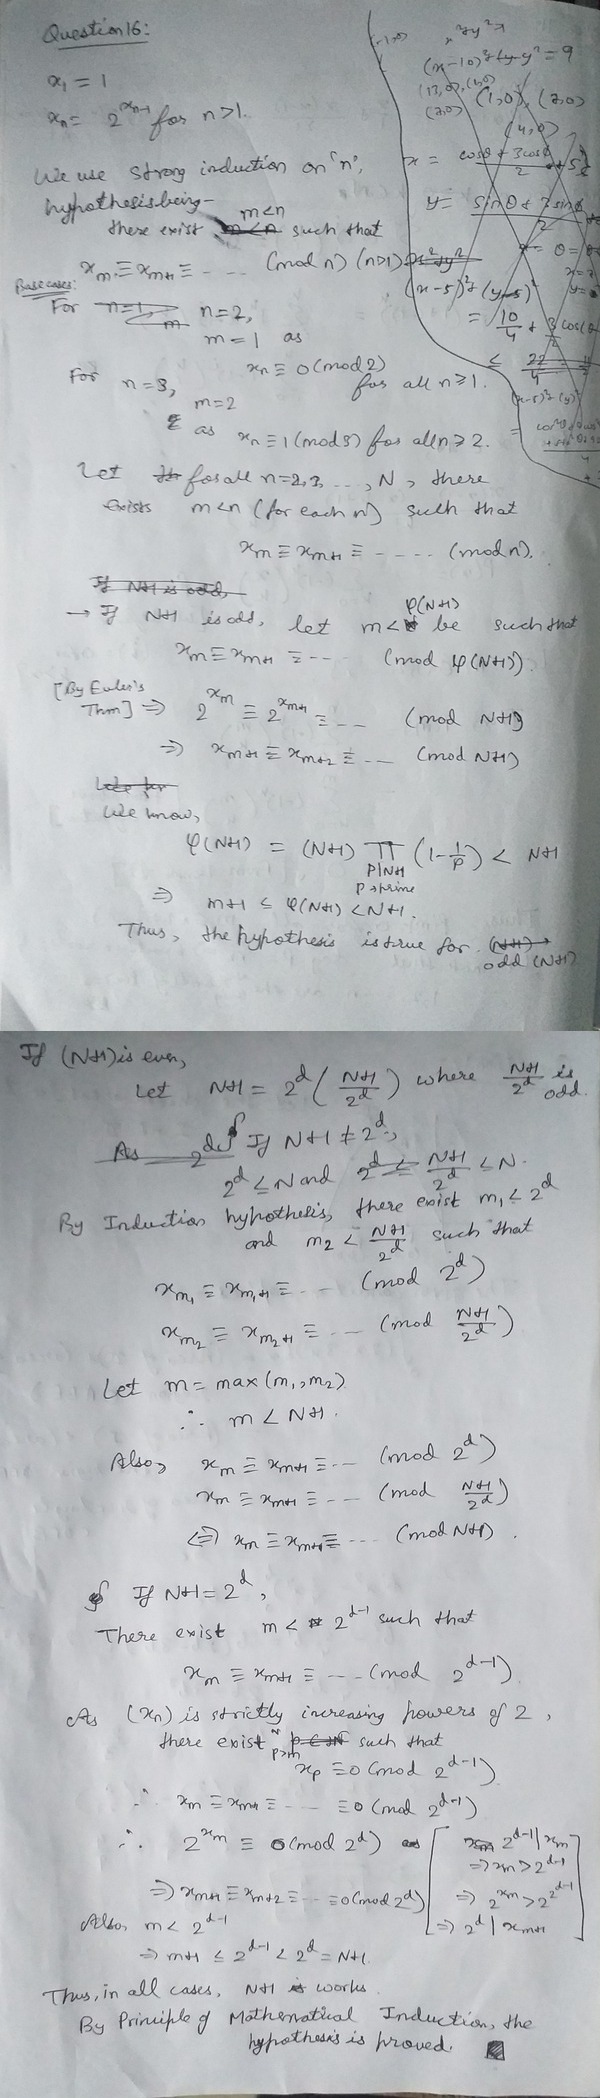 Question 16:
x₁ = 1
xₙ = 2^(xₙ₋₁) for n>1.
We use strong induction on 'n',
hypothesis being-
there exist m<n such that
xₘ ≡ xₘ₊₁ ≡ .... (mod n) (n>1)
Base cases:
For n=2,
m = 1 as
xₙ ≡ 0 (mod 2)
for all n≥1.
For n=3,
m=2
as xₙ ≡ 1 (mod 3) for all n≥2.
Let for all n=2,3, ..., N, there
exists m<n (for each n) such that
xₘ ≡ xₘ₊₁ ≡ .... (mod n).
→ If N+1 is odd, let m< φ(N+1) be such that
xₘ ≡ xₘ₊₁ ≡ ... (mod φ(N+1)).
[By Euler's Thm] ⇒ 2^(xₘ) ≡ 2^(xₘ₊₁) ≡ ... (mod N+1)
⇒ xₘ₊₁ ≡ xₘ₊₂ ≡ ... (mod N+1)
We know,
φ(N+1) = (N+1) ∏ (1-1/p) < N+1
p|N+1
p→prime
⇒ m+1 ≤ φ(N+1) < N+1.
Thus, the hypothesis is true for
odd (N+1)
x²+y²=1
(-1,0)
(13,0), (1,0)
(7,0)
(1,0), (7,0)
(4,0)
If (N+1) is even,
Let N+1 = 2^d ((N+1)/2^d) where (N+1)/2^d is odd.
If N+1 ≠ 2^d,
2^d ≤ N and (N+1)/2^d ≤ N.
By Induction hyphothesis, there exist m₁ < 2^d
and m₂ < (N+1)/2^d such that
xₘ₁ ≡ xₘ₁₊₁ ≡ ... (mod 2^d)
xₘ₂ ≡ xₘ₂₊₁ ≡ ... (mod (N+1)/2^d)
Let m = max(m₁, m₂)
∴ m < N+1.
Also, xₘ ≡ xₘ₊₁ ≡ ... (mod 2^d)
xₘ ≡ xₘ₊₁ ≡ ... (mod (N+1)/2^d)
⇔ xₘ ≡ xₘ₊₁ ≡ ... (mod N+1).
If N+1 = 2^d,
There exist m < 2^(d-1) such that
xₘ ≡ xₘ₊₁ ≡ ... (mod 2^(d-1))
As (xₙ) is strictly increasing powers of 2,
there exist p>m such that
xₚ ≡ 0 (mod 2^(d-1))
∴ xₘ ≡ xₘ₊₁ ≡ .... ≡ 0 (mod 2^(d-1))
∴ 2^(xₘ) ≡ 0 (mod 2^d) as [2^(d-1) | xₘ
⇒ xₘ > 2^(d-1)
⇒ 2^(xₘ) > 2^(2^(d-1))
⇒ 2^d | xₘ₊₁]
⇒ xₘ₊₁ ≡ xₘ₊₂ ≡ ... ≡ 0 (mod 2^d)
Also, m < 2^(d-1)
⇒ m+1 ≤ 2^(d-1) < 2^d = N+1.
Thus, in all cases, N+1 works.
By Principle of Mathematical Induction, the
hyphothesis is proved.